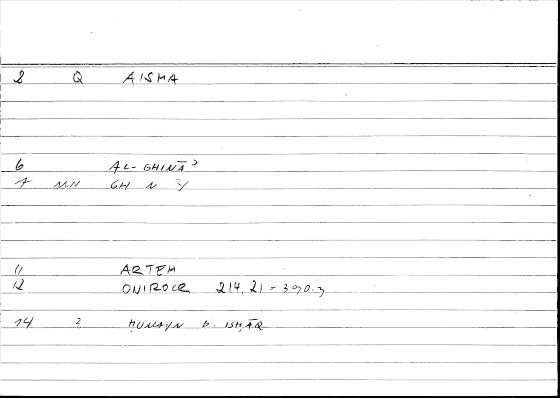 2 Q AISMA
6 AL-GHINĀʾ
7 NN GH N Y
11 ARTEM
12 ONIROCR 214,21 = 390.3
14 2 ḤUNAYN b. ISḤĀQ